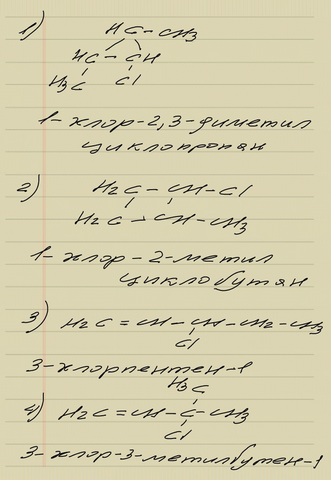 1) HC-CH3
HC-CH
H3C Cl
1-хлор-2,3-диметил
циклопропан
2) H2C-CH-Cl
H2C-CH-CH3
1-хлор-2-метил
циклобутан
3) H2C=CH-CH-CH2-CH3
Cl
3-хлорпентен-1
H3C
4) H2C=CH-C-CH3
Cl
3-хлор-3-метилбутен-1